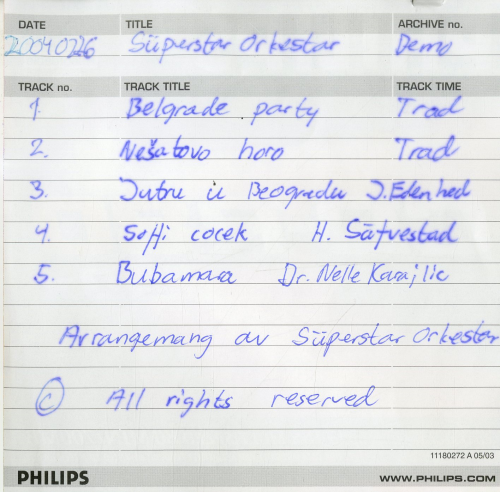 DATE TITLE ARCHIVE no.
20040226 Süperstar Orkestar Demo
TRACK no. TRACK TITLE TRACK TIME
1. Belgrade party Trad
2. Nešatovo horo Trad
3. Jutru u Beogradu J. Edenhed
4. Soffi cocek H. Säfvestad
5. Bubamara Dr. Nelle Karajlic
Arrangemang av Süperstar Orkestar
© All rights reserved
11180272 A 05/03
PHILIPS WWW.PHILIPS.COM